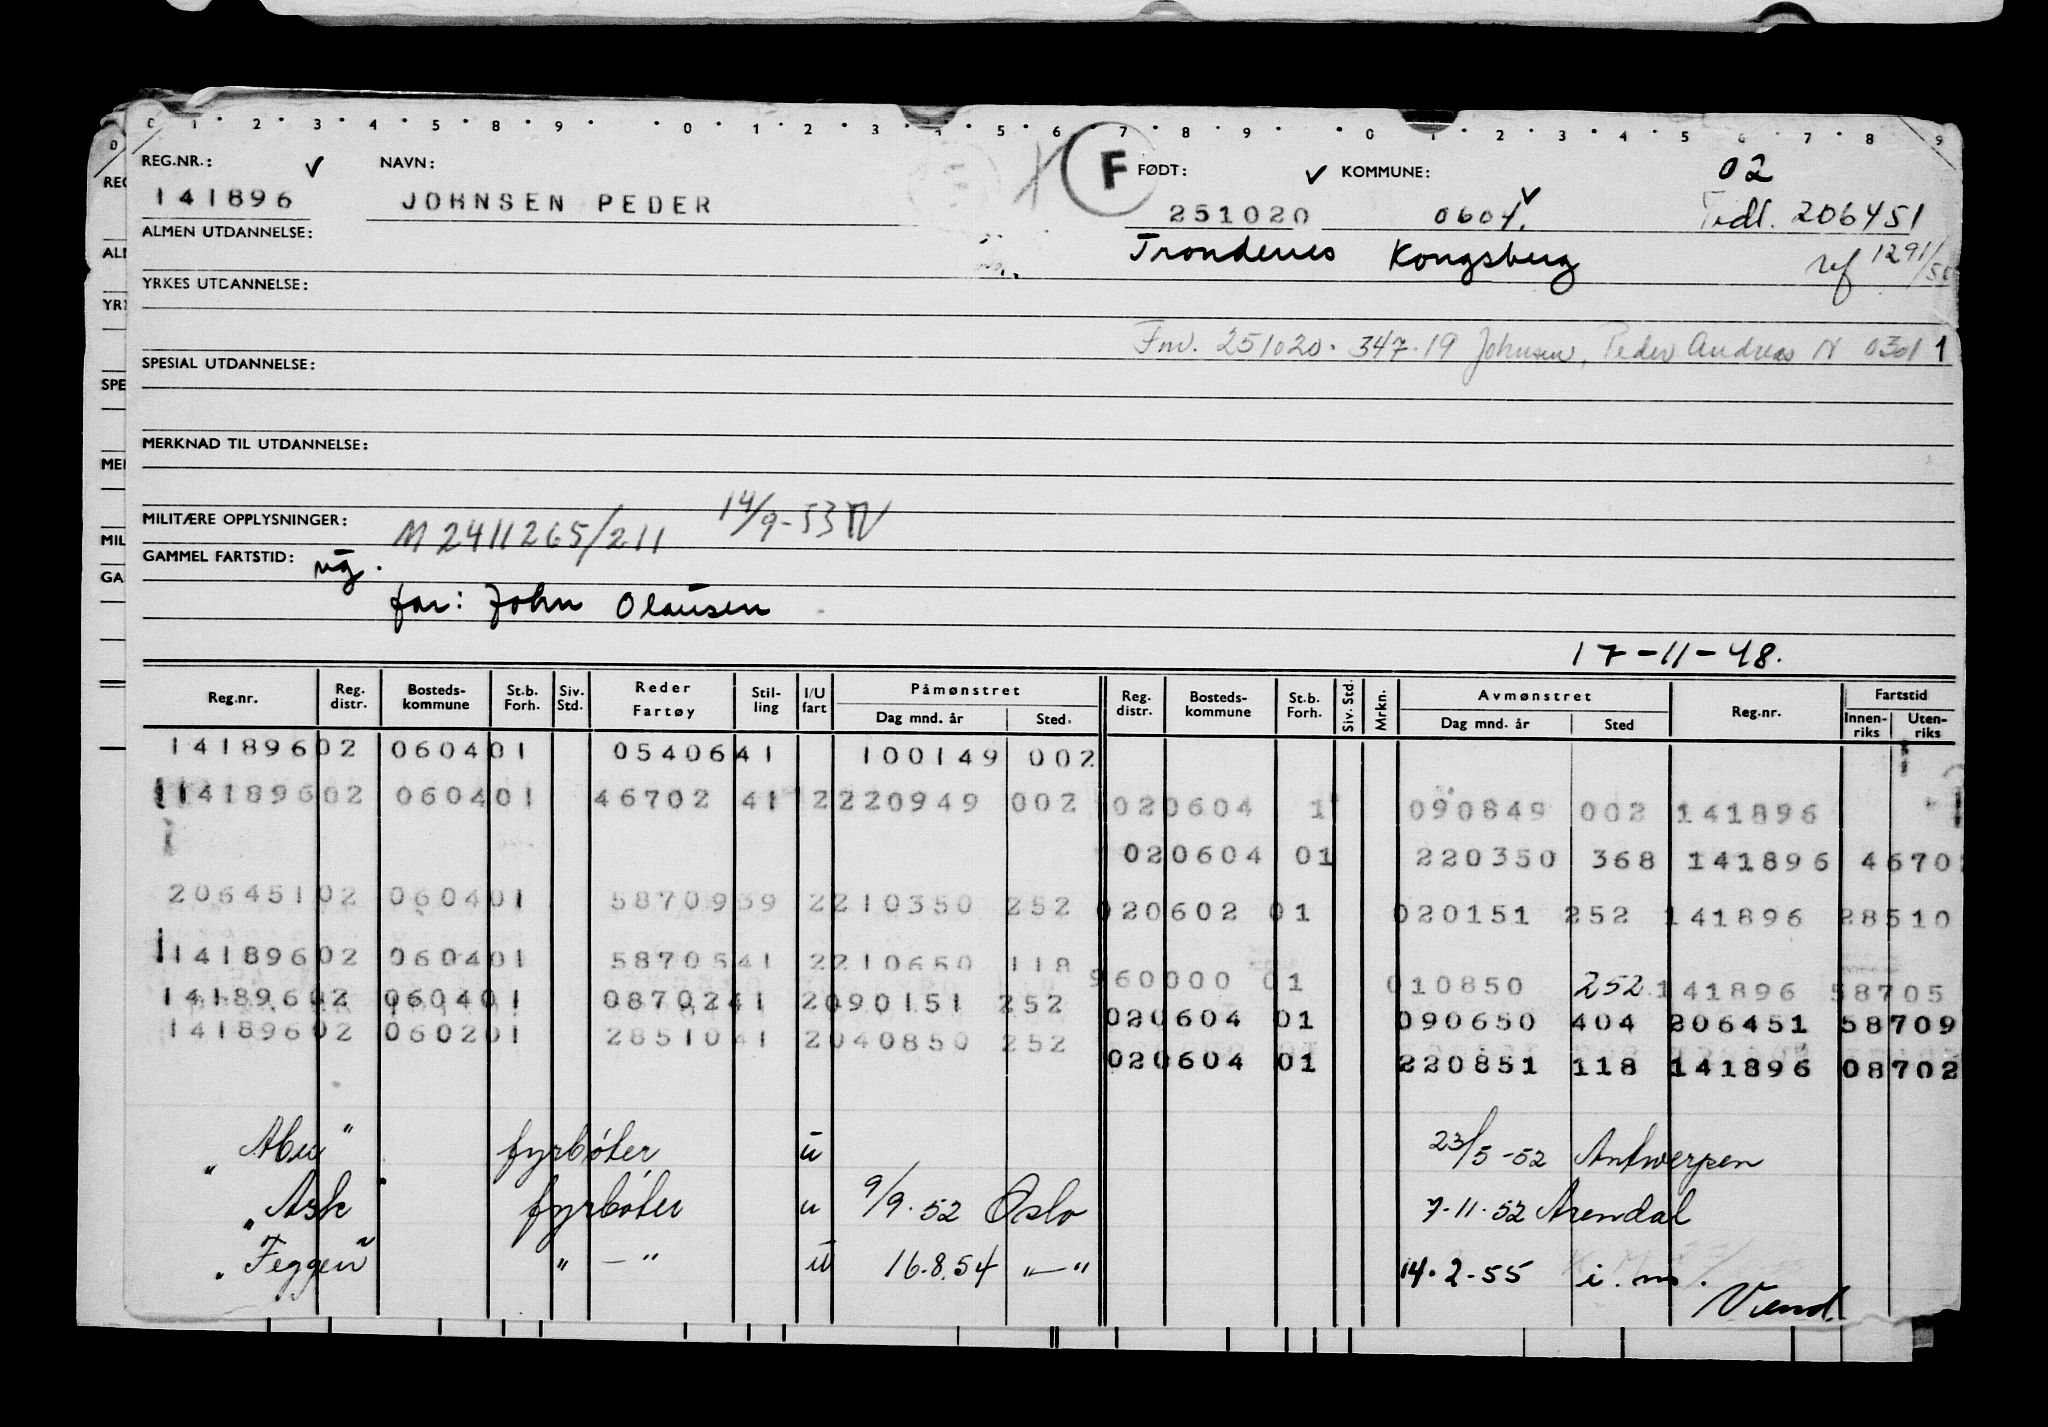 0 1 2 3 4 5 8 9 0 1 2 3 4 5 6 7 8 9 0 1 2 3 4 5 6 7 8 9
REG.NR.: NAVN: F FØDT: KOMMUNE: 02
141896 JOHNSEN PEDER 251020 0604. Tidl. 206451
ALMEN UTDANNELSE: Trondenes Kongsberg ref 1291/
YRKES UTDANNELSE:
Fnr. 251020. 347.19 Johnsen, Peder Andreas N 0301 1
SPESIAL UTDANNELSE:
MERKNAD TIL UTDANNELSE:
MILITÆRE OPPLYSNINGER: M 2411265/211 14/9-53
GAMMEL FARTSTID:
far: John Olausen
17-11-48.
Reg.nr. Reg. distr. Bosteds-kommune St.b. Forh. Siv. Std. Reder Fartøy Stil-ling I/U fart Påmønstret Dag mnd. år Sted. Reg. distr. Bosteds-kommune St.b. Forh. Siv. Std. Mrkn. Avmønstret Dag mnd. år Sted Reg.nr. Fartstid Innen-riks Uten-riks
14189602 060401 0540641 100149 002
14189602 060401 46702 41 2220949 002 020604 1 090849 002 141896
020604 01 220350 368 141896 4670
20645102 060401 5870939 2210350 252 020602 01 020151 252 141896 28510
14189602 060401 5870541 2210650 118 960000 01 010850 252 141896 58705
14189602 060401 0870241 2090151 252 020604 01 090650 404 206451 58709
14189602 060201 2851041 2040850 252 020604 01 220851 118 141896 08702
"Abu" fyrbøter u 23/5-52 Antwerpen
"Ask" fyrbøter u 9/9.52 Oslo 7.11.52 Arendal
"Feggen" "—" u 16.8.54 "—" 14.2-55 i. m.
Vend.